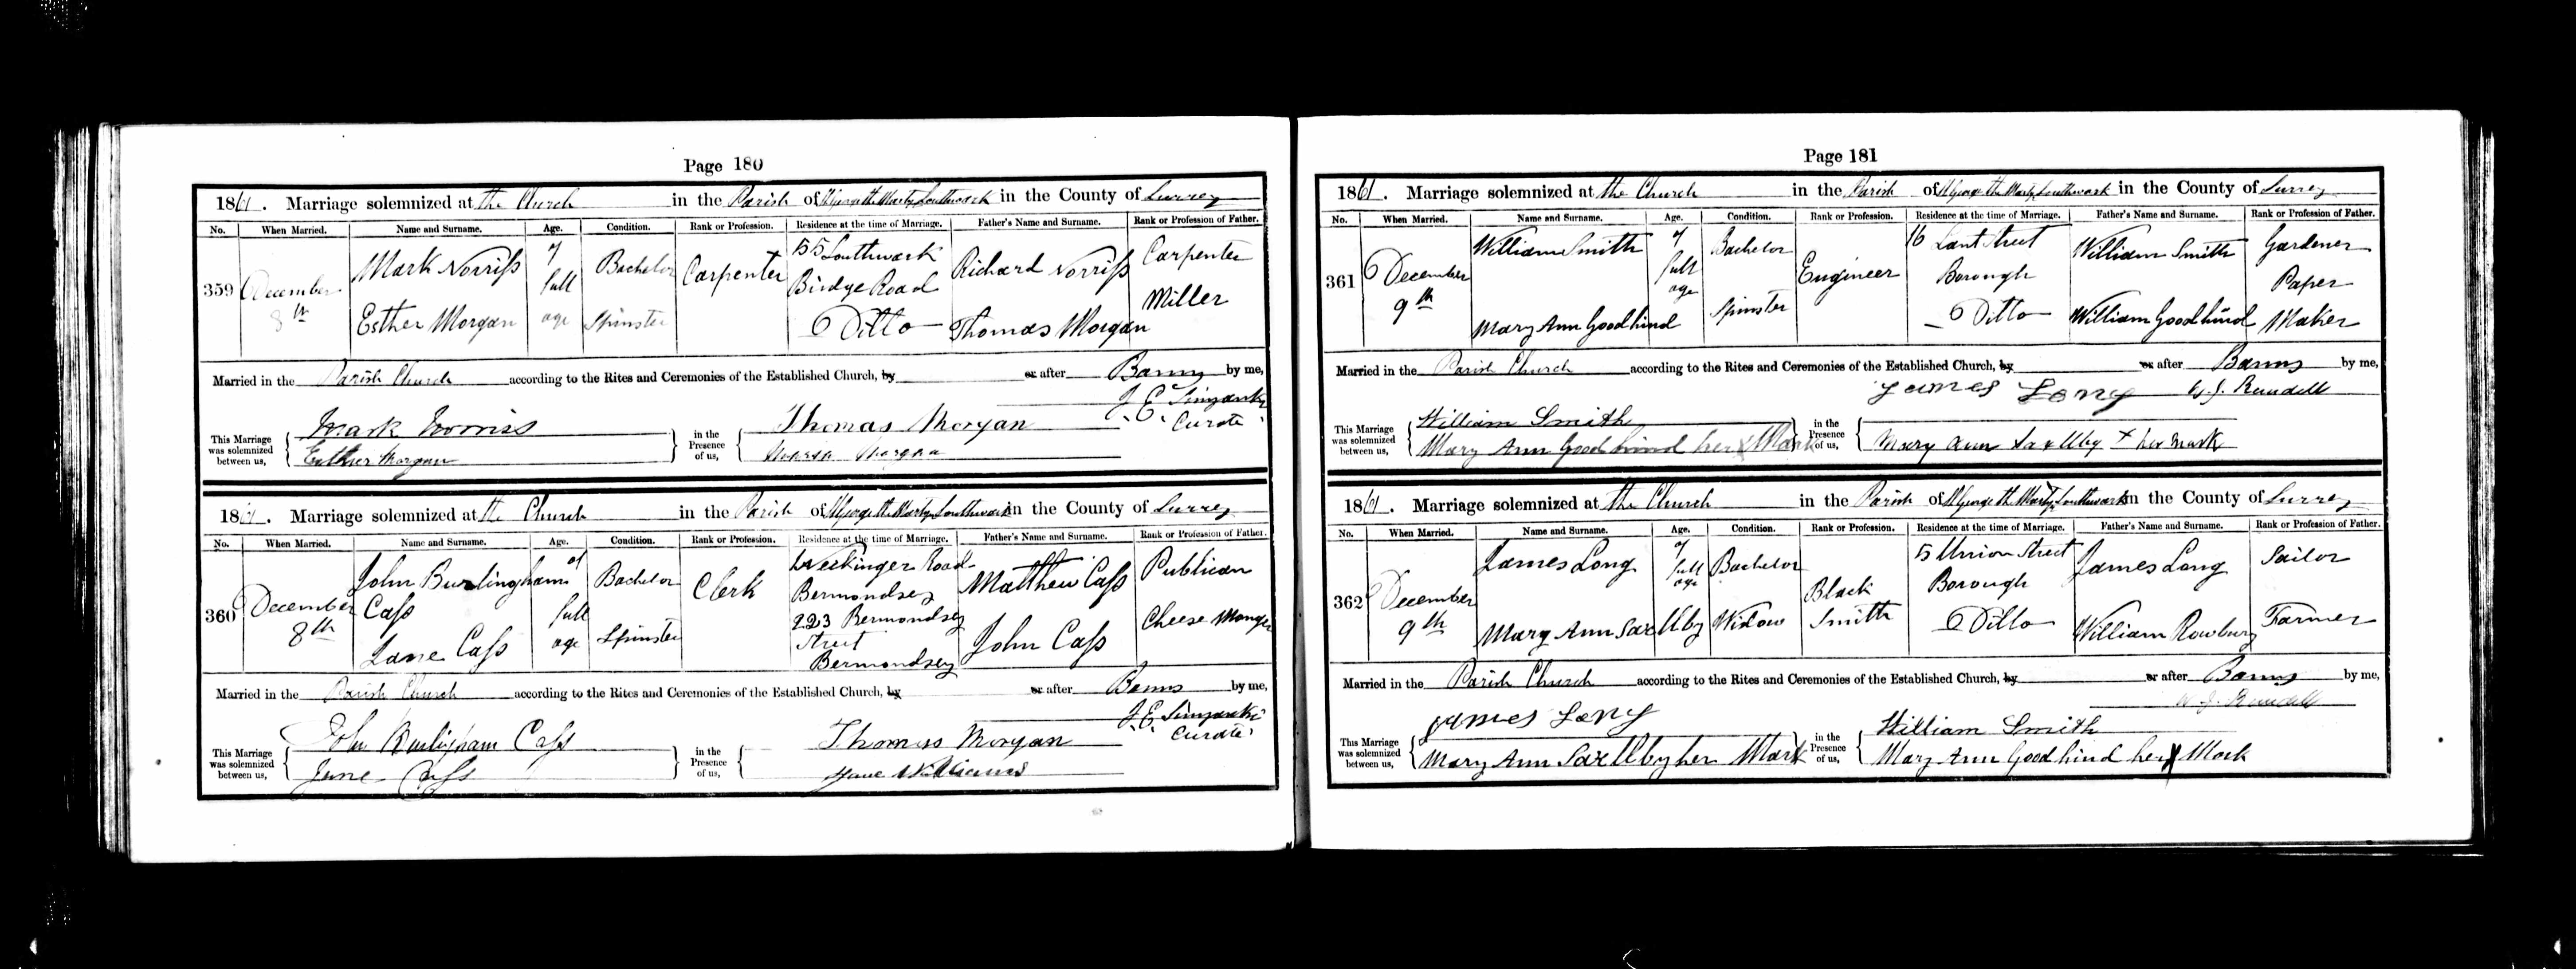 Page 180
1861. Marriage solemnized at the Church in the Parish of St George the Martyr Southwark in the County of Surrey
No. When Married. Name and Surname. Age. Condition. Rank or Profession. Residence at the time of Marriage. Father's Name and Surname. Rank or Profession of Father.
359 December 8th
Mark Norriss of full age Bachelor Carpenter 55 Southwark Birdge Road Richard Norriss Carpenter
Esther Morgan Spinster Ditto Thomas Morgan Miller
Married in the Parish Church according to the Rites and Ceremonies of the Established Church, by or after Banns by me,
J. E. Curate
This Marriage was solemnized between us, Mark Norriss
Esther Morgan
in the Presence of us, Thomas Morgan
Morgan
1861. Marriage solemnized at the Church in the Parish of St George the Martyr Southwark in the County of Surrey
No. When Married. Name and Surname. Age. Condition. Rank or Profession. Residence at the time of Marriage. Father's Name and Surname. Rank or Profession of Father.
360 December 8th
John Burlingham Cass of full age Bachelor Clerk Neckinger Road Bermondsey Matthew Cass Publican
Jane Cass Spinster 223 Bermondsey Street Bermondsey John Cass Cheese Monger
Married in the Parish Church according to the Rites and Ceremonies of the Established Church, by or after Banns by me,
J. E. Curate
This Marriage was solemnized between us, John Burlingham Cass
Jane Cass
in the Presence of us, Thomas Morgan
Jane Williams
Page 181
1861. Marriage solemnized at the Church in the Parish of St George the Martyr Southwark in the County of Surrey
No. When Married. Name and Surname. Age. Condition. Rank or Profession. Residence at the time of Marriage. Father's Name and Surname. Rank or Profession of Father.
361 December 9th
William Smith of full age Bachelor Engineer 16 Lant Street Borough William Smith Gardener
Mary Ann Goodhind Spinster Ditto William Goodhind Paper Maker
Married in the Parish Church according to the Rites and Ceremonies of the Established Church, by or after Banns by me,
W. J. Rundell
This Marriage was solemnized between us, William Smith
Mary Ann Goodhind her X Mark
in the Presence of us, James Long
Mary Ann Saxllby X her mark
1861. Marriage solemnized at the Church in the Parish of St George the Martyr Southwark in the County of Surrey
No. When Married. Name and Surname. Age. Condition. Rank or Profession. Residence at the time of Marriage. Father's Name and Surname. Rank or Profession of Father.
362 December 9th
James Long of full age Bachelor Black Smith 5 Union Street Borough James Long Sailor
Mary Ann Saxllby Widow Ditto William Rowbury Farmer
Married in the Parish Church according to the Rites and Ceremonies of the Established Church, by or after Banns by me,
W. J. Rundell
This Marriage was solemnized between us, James Long
Mary Ann Saxllby her Mark X
in the Presence of us, William Smith
Mary Ann Goodhind her X Mark